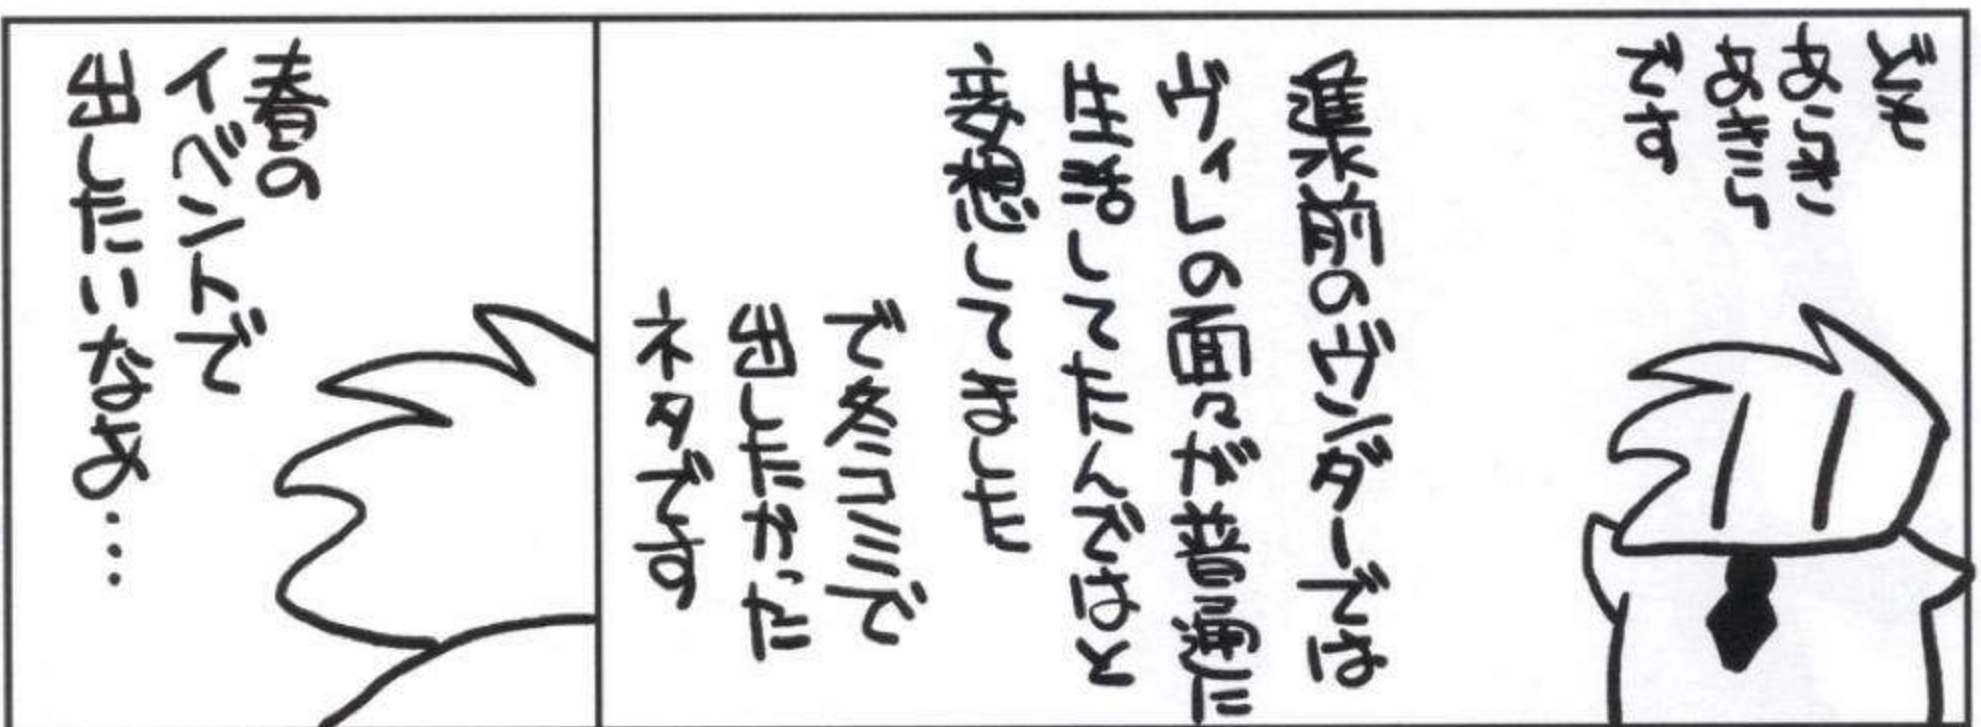 ども
あらき
あきら
です
進水前のヴンダーでは
ヴィレの面々が普通に
生活してたんではと
妄想してました
で冬コミで
出したかった
ネタです
春の
イベントで
出したいなあ…